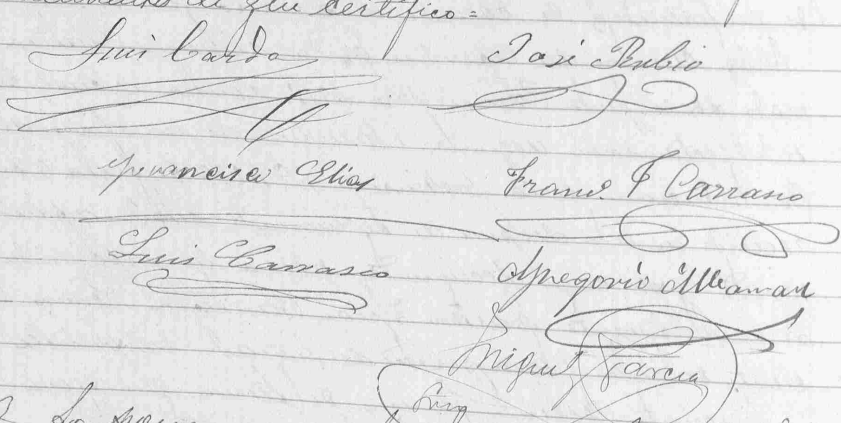 de que certifico =
Luis Carda José Rubio
Francisco Elias Franco. F Carrasco
Luis Carrasco Gregorio
Miguel Garcia